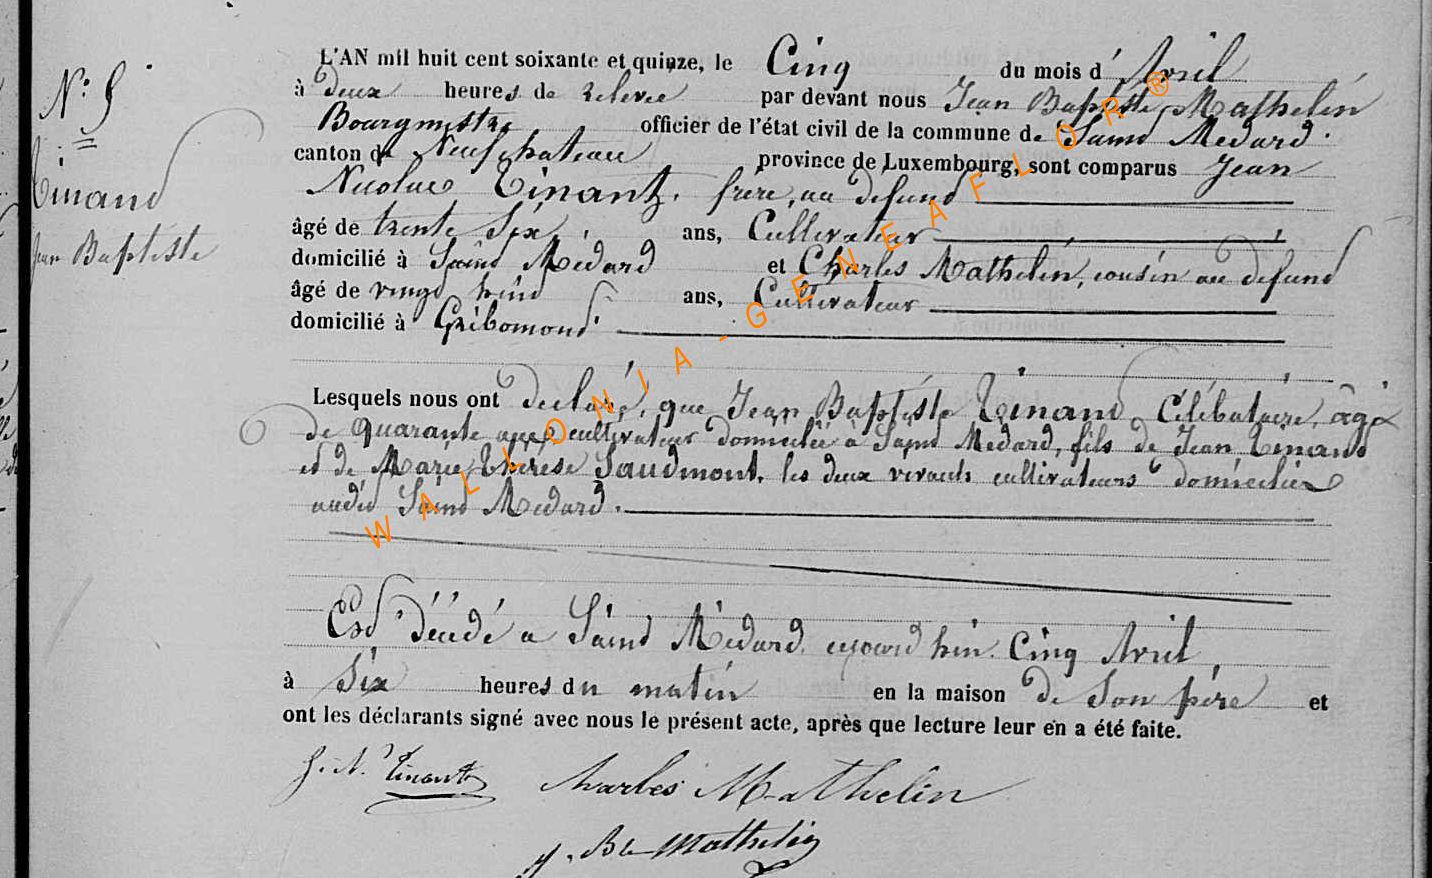 N° 5
Tinand
Jean Baptiste
L'AN mil huit cent soixante et quinze, le Cinq du mois d' Avril
à deux heures de relevée par devant nous Jean Baptiste Mathelin
Bourgmestre officier de l'état civil de la commune de Saind Médard.
canton de Neufchateau province de Luxembourg, sont comparus Jean
Nicolas Tinant, frère, au defund
âgé de trente Six ans, Cultivateur
domicilié à Saind Médard et Charles Mathelin, cousin au defund
âgé de vingd huid ans, Cultivateur
domicilié à Gribomond.
Lesquels nous ont déclaré, que Jean Baptiste Tinand Célébataire, âgé
de quarante ans cultivateur domicilié à Saind Médard, fils de Jean Tinand
et de Marie Thérèse Saudmont, les deux vivants cultivateurs domiciliés
audid Saind Médard.
Esd décédé a Saind Médard, aujourd huin Cinq Avril
à Six heures du matin en la maison de Son père et
ont les déclarants signé avec nous le présent acte, après que lecture leur en a été faite.
J. N. Tinant Charles Mathelin
J. Bte Mathelin
WALLONIA-GENEAFLOR®